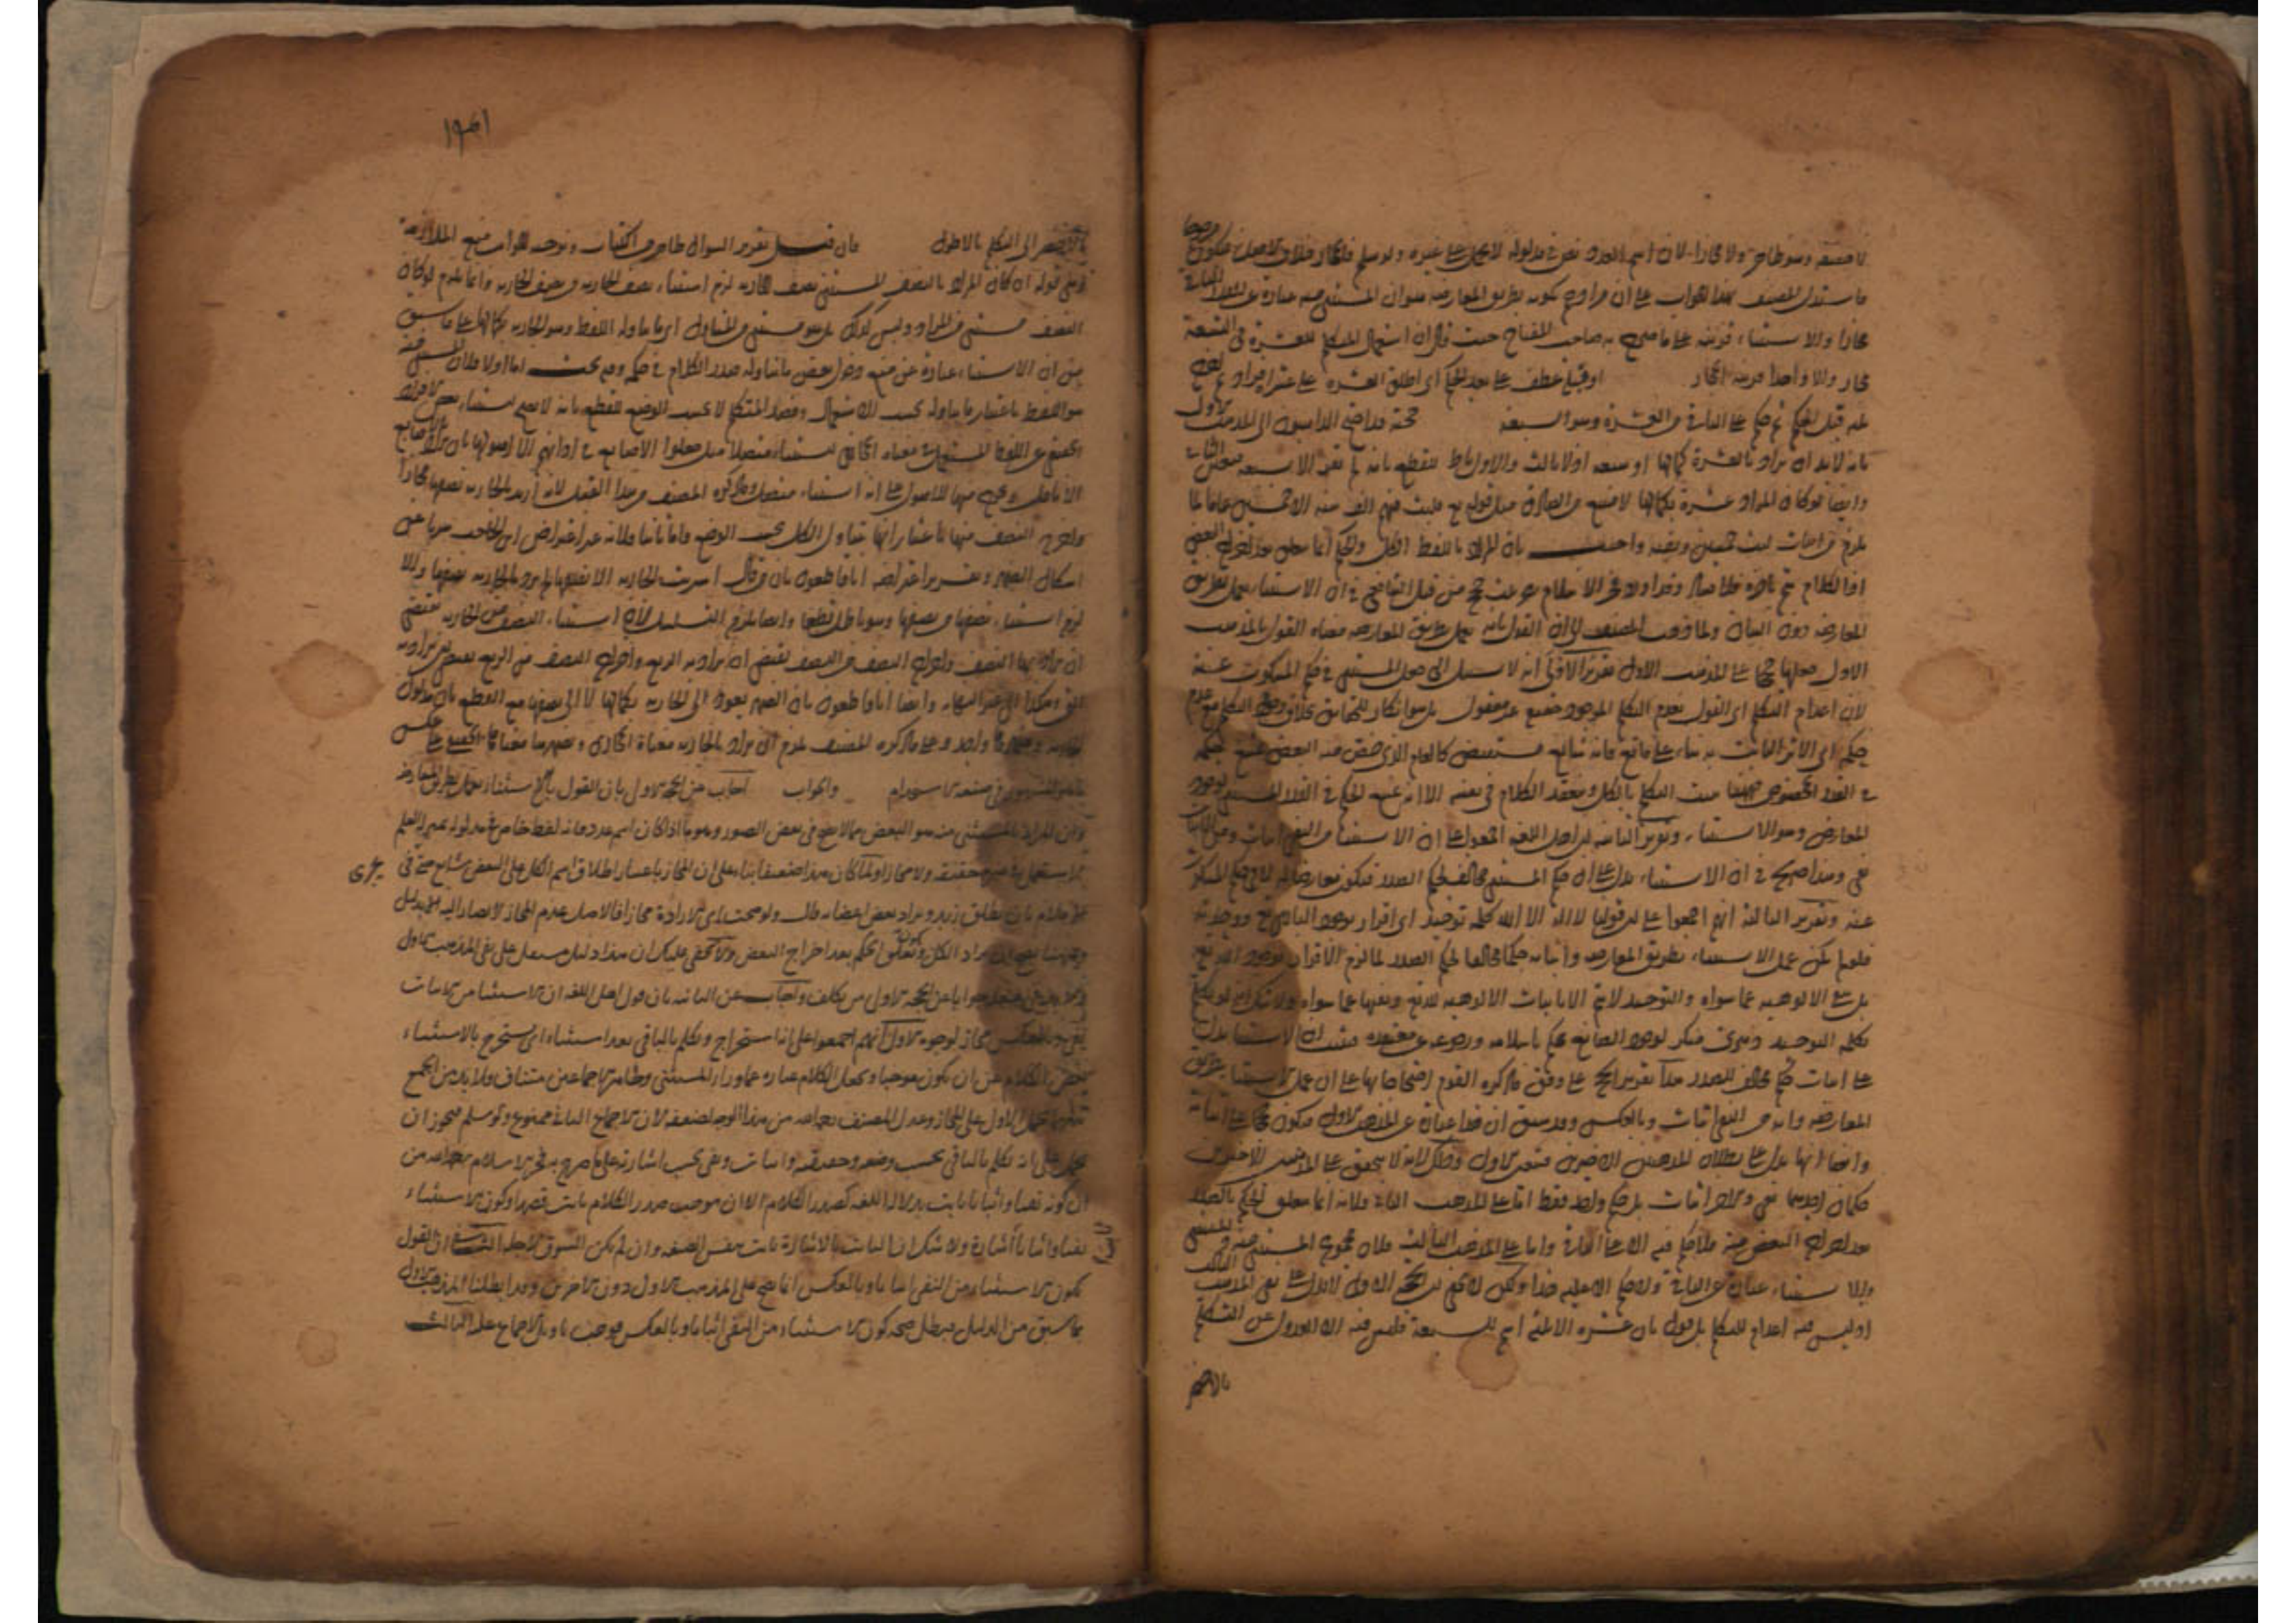 لا حقيقة وهو ظاهر ولا مجازا لان اسم العدد نص في مدلوله لا يحمل على غيره ولو سلم فالمجاز خلاف الاصل فيكون مرجوحا
ما استدل المصنف بهذا الجواب على ان مرادهم بكونه بطريق المعارضة هو ان المستثنى منه عبارة عن
مجازا والاستثناء قرينة على ما صرح به صاحب المفتاح حيث قال ان استعمال المتكلم للعشرة في التسعة
مجاز والا واحدا قرينة المجاز او قبله عطف على بعد الحكم اي اطلق العشرة على عشرة افراد ثم اخرج
قبل الحكم ثم حكم على الباقي من العشرة وهو السبعة حجة المذهب الاول
بانه لا بد ان يراد بالعشرة كمالها او سبعة اولا ثالث والاول باطل للقطع بانه لم يقر الا سبعة فتعين الثاني
وايضا لو كان المراد عشرة بكمالها لامتنع من الصادق مثل قوله تع فلبث فيهم الف سنة الا خمسين عاما لما
يلزم من اثبات لبث خمسين ونفيه واجيب بان المراد باللفظ الكل والحكم انما يتعلق بعد اخراج البعض
اذ الكلام تم بآخره فخر الاسلام من قبل الشافعي في ان الاستثناء يعمل بطريق
المعارضة دون البيان ولما ذهب المصنف الى ان القول بانه يعمل بطريق المعارضة معناه القول بالمذهب
الاول جعلها حججا على المذهب الاول تقرير الاولى انه لا سبيل الى جعل المستثنى في حكم المسكوت عنه
لان اعدام التكلم اي القول بعدم التكلم الموجود حقيقة غير معقول بل هو انكار للحقائق بخلاف وجود التكلم مع عدم
حكمه اي الاثر الثابت به بناء على مانع فانه شائع مستفيض كالعام الذي خص منه البعض يمتنع حكمه
في القدر المخصوص فههنا يثبت التكلم بالكل وينعقد الكلام في نفسه الا انه يمتنع الحكم في القدر المستثنى لوجود
المعارض وهو الاستثناء وتقرير الثانية ان اهل اللغة اجمعوا على ان الاستثناء من النفي اثبات ومن الاثبات
نفي وهذا صريح في ان الاستثناء يدل على ان حكم المستثنى مخالف لحكم الصدر فيكون معارضا له لا في حكم المسكوت
عنه وتقرير الثالثة انهم اجمعوا على ان قولنا لا اله الا الله كلمة توحيد اي اقرار بوجود الباري تع ووحدته
فلو لم يكن عمل الاستثناء بطريق المعارضة واثبات حكم مخالف لحكم الصدر لما لزم الاقرار بوجود الله تع
بل نفي الالوهية عما سواه والتوحيد لا يتم الا باثبات الالوهية لله تع ونفيها عما سواه
بكلمة التوحيد دهري منكر لوجود الصانع يحكم باسلامه ورجوعه عن معتقده فثبت ان الاستثناء يدل
على اثبات حكم مخالف للصدر هذا تقرير الحجج على وفق ما ذكره القوم احتجاجا بها على ان عمل الاستثناء بطريق
المعارضة وانه من النفي اثبات وبالعكس وقد سبق ان هذا عبارة عن المذهب الاول فيكون حججا على اثباته
وايضا انها تدل على بطلان المذهبين الاخيرين فتعين الاول وذلك لانه لا يتحقق على المذهبين الاخيرين
حكمان احدهما نفي والاخر اثبات بل حكم واحد فقط اما على المذهب الثاني فلانه انما يتعلق الحكم بالصدر
بعد اخراج البعض منه فلا حكم فيه الا على الباقي واما على المذهب الثالث فلان مجموع المستثنى منه والمستثنى
والاستثناء عبارة عن الباقي ولا حكم الا عليه هذا ولكن لا يخفى ان الحجة الاولى لا تدل على نفي المذهب الثالث
اذ ليس فيه اعدام للتكلم بل قول بان عشرة الا ثلثة اسم للسبعة فليس فيه الا العدول عن التكلم
بالاخصر
بالاخصر الى التكلم بالاطول فان قيل تقرير السؤال ظاهر من الكتاب وتوجيه الجواب منع الملازمة
في قوله ان كان المراد بالنصف المستثنى نصف الجارية لزم استثناء نصف الجارية من نصف الجارية وانما يلزم لو كان
النصف مستثنى من المراد وليس كذلك بل هو مستثنى من المتناول اي ما يتناوله اللفظ وهو الجارية بكمالها على ما سبق
من ان الاستثناء عبارة عن منع دخول بعض ما تناوله صدر الكلام في حكمه وفيه بحث اما اولا فلان المستثنى منه
هو اللفظ باعتبار ما يتناوله بحسب الاستعمال وقصد المتكلم لا بحسب الوضع للقطع بانه لا يصح استثناء
الحقيقي عن اللفظ المستعمل في معناه المجازي استثناء متصلا مثل جعلوا الاصابع في اذانهم الا اصولها بان يراد بالاصابع
الانامل ويخرج منها الاصول على انه استثناء متصل وما ذكره المصنف من هذا القبيل لانه اريد بالجارية نصفها مجازا
واخرج النصف منها باعتبار انها تتناول الكل بحسب الوضع واما ثانيا فلانه غير اعتراض ابن الحاجب هربا عن
اشكال الضمير وتقرير اعتراضه انا قاطعون بان من قال اشتريت الجارية الا نصفها لم يرد بالجارية نصفها والا
لزم استثناء نصفها من نصفها وهو باطل قطعا وايضا يلزم التسلسل لان استثناء النصف من الجارية يقتضي
ان يراد بها النصف واخراج النصف من النصف يقتضي ان يراد به الربع واخراج النصف من الربع يقتضي ان يراد به
الثمن وهكذا الى غير النهاية وايضا انا قاطعون بان الضمير يعود الى الجارية بكمالها لا الى نصفها مع القطع بان مدلول
الجارية وضميرها واحد وعلى ما ذكره المصنف يلزم ان يراد بالجارية معناه المجازي وبضميرها معناها الحقيقي على عكس
ما هو المشهور في صنعة الاستخدام والجواب اجاب عن الحجة الاولى بان القول بان الاستثناء يعمل بطريق المعارضة
وان المراد بالمستثنى منه هو البعض مما لا يصح في بعض الصور وهو ما اذا كان اسم عدد فانه لفظ خاص في مدلوله بمنزلة العلم
لا يستعمل في غيره حقيقة ولا مجازا ولما كان هذا ضعيفا بناء على ان المجاز باعتبار اطلاق اسم الكل على البعض شايع حتى في
يجري
الاعلام بان يطلق زيد ويراد بعض اعضائه قال ولو صحت اي الارادة مجازا فالاصل عدم المجاز لا يصار اليه الا بدليل
وههنا يصح ان يراد الكل ويكون تعلق الحكم بعد اخراج البعض ولا يخفى عليك ان هذا دليل مستقل على نفي المذهب الاول
جوابا عن الحجة الاولى من تكلف واجاب عن الثانية بان قول اهل اللغة ان الاستثناء من الاثبات
نفي وبالعكس مجاز لوجوه الاول انهم اجمعوا على انه استخراج وتكلم بالباقي بعد استثناء اي يستخرج بالاستثناء
بعض الكلام عن ان يكون موجبا ويجعل الكلام عبارة عما وراء المستثنى وظاهر الاجماعين متناف ولا بد من الجمع
بينهما بحمل الاول على المجاز وعدل المصنف رحمه الله من هذا الوجه لضعفه لان الاجماع الثاني ممنوع ولو سلم فيجوز ان
يحمل على انه تكلم بالباقي بحسب وضعه وحقيقته واثبات ونفي بحسب اشارته على ما صرح به فخر الاسلام رحمه الله من
ان كونه نفيا واثباتا ثابت بدلالة اللغة كصدر الكلام الا ان موجب صدر الكلام ثابت قصدا وكون الاستثناء
نفيا واثباتا اشارة ولا شك ان الثابت بالاشارة ثابت بنفس الصيغة وان لم يكن السوق لاجله الثاني ان القول
بكون الاستثناء من النفي اثباتا وبالعكس انما يصح على المذهب الاول دون الاخرين وقد ابطلنا المذهب الاول
بما سبق من الدليل فبطل صحة كون الاستثناء من النفي اثباتا وبالعكس فوجب تاويل الاجماع عليه الثالث